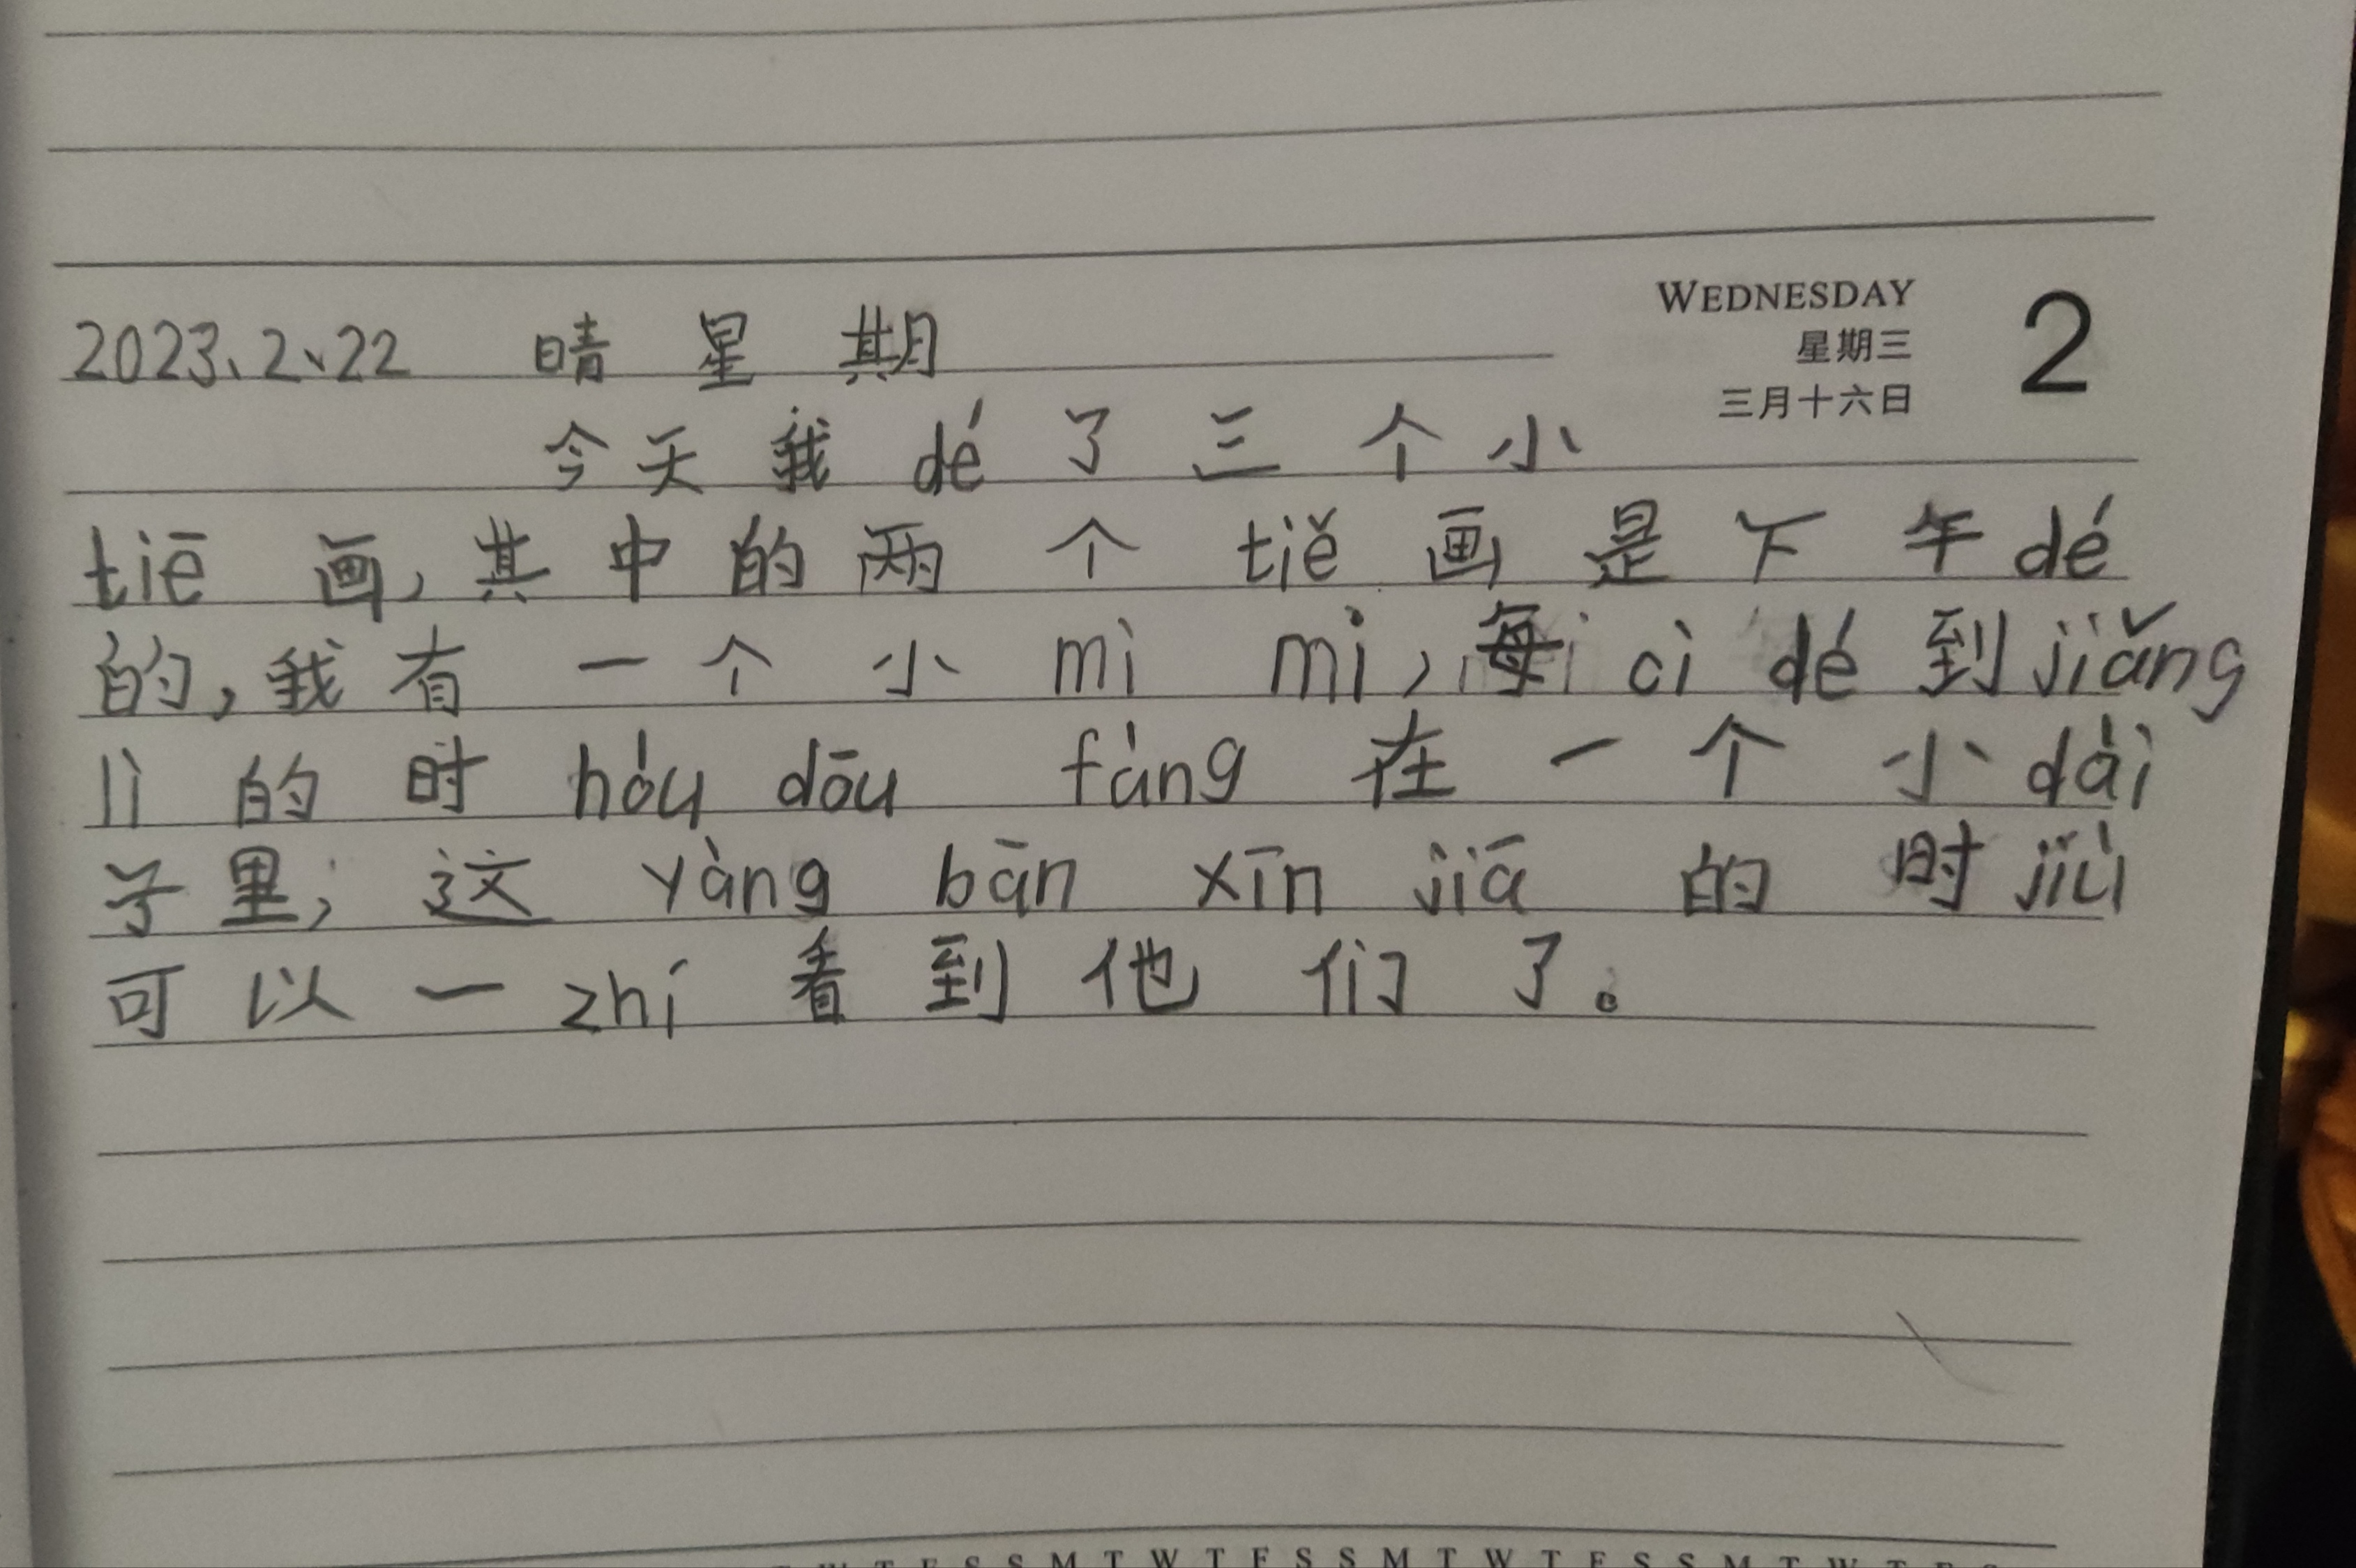 WEDNESDAY
星期三
三月十六日
2
2023、2、22 晴 星 期
今 天 我 dé 了 三 个 小
tiē 画，其 中 的 两 个 tiě 画 是 下 午 dé
的，我 有 一 个 小 mì mì，每 cì dé 到 jiǎng
lì 的 时 hòu dōu fàng 在 一 个 小 dài
子 里，这 yàng bān xīn jiā 的 时 jiù
可 以 一 zhí 看 到 他 们 了。
S S M T W T F S S M T W T F S S M T W T F S